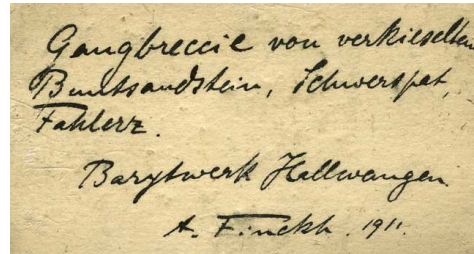 Gangbreccie von verkieselten
Buntsandstein, Schwerspat,
Fahlerz.
Barytwerk Hallwangen.
A. Finckh. 1911.